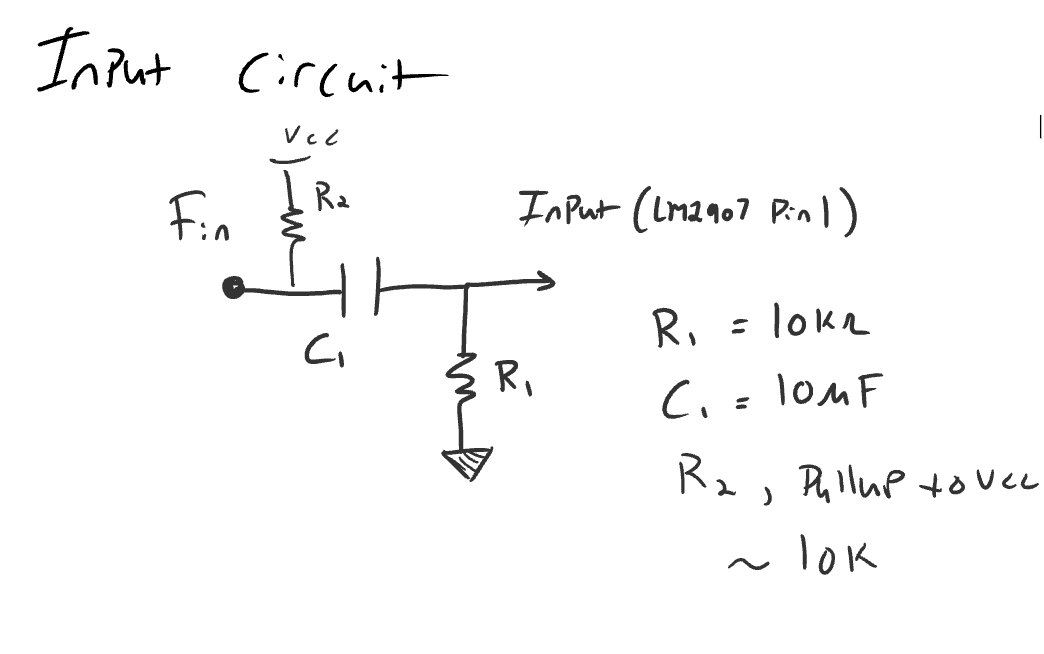 Input Circuit
Vcc
R2
Fin
Input (LM2907 Pin 1)
C1
R1
R1 = 10KΩ
C1 = 10µF
R2, Pullup to Vcc
~ 10K